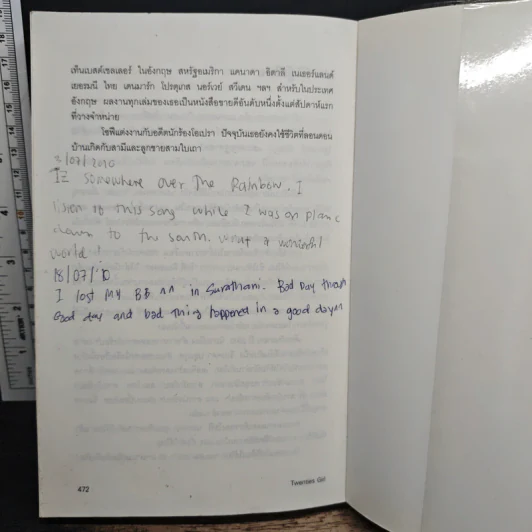 เท็นเบสต์เซลเลอร์ ในอังกฤษ สหรัฐอเมริกา แคนาดา อิตาลี เนเธอร์แลนด์
เยอรมนี ไทย เดนมาร์ก โปรตุเกส นอร์เวย์ สวีเดน ฯลฯ สำหรับในประเทศ
อังกฤษ ผลงานทุกเล่มของเธอเป็นหนังสือขายดีอันดับหนึ่งตั้งแต่สัปดาห์แรก
ที่วางจำหน่าย
โซฟีแต่งงานกับอดีตนักร้องโอเปรา ปัจจุบันเธอยังคงใช้ชีวิตที่ลอนดอน
บ้านเกิดกับสามีและลูกชายสามใบเถา
/07/2010
IZ somewhere over The Rainbow. I
listen to this song while I was on plane
down to the south. what a wonderful
world !
18/07/10
I lost my BB ^^ in Surathani. Bad Day though
Good day and bad thing happened in a good day
472
Twenties Girl